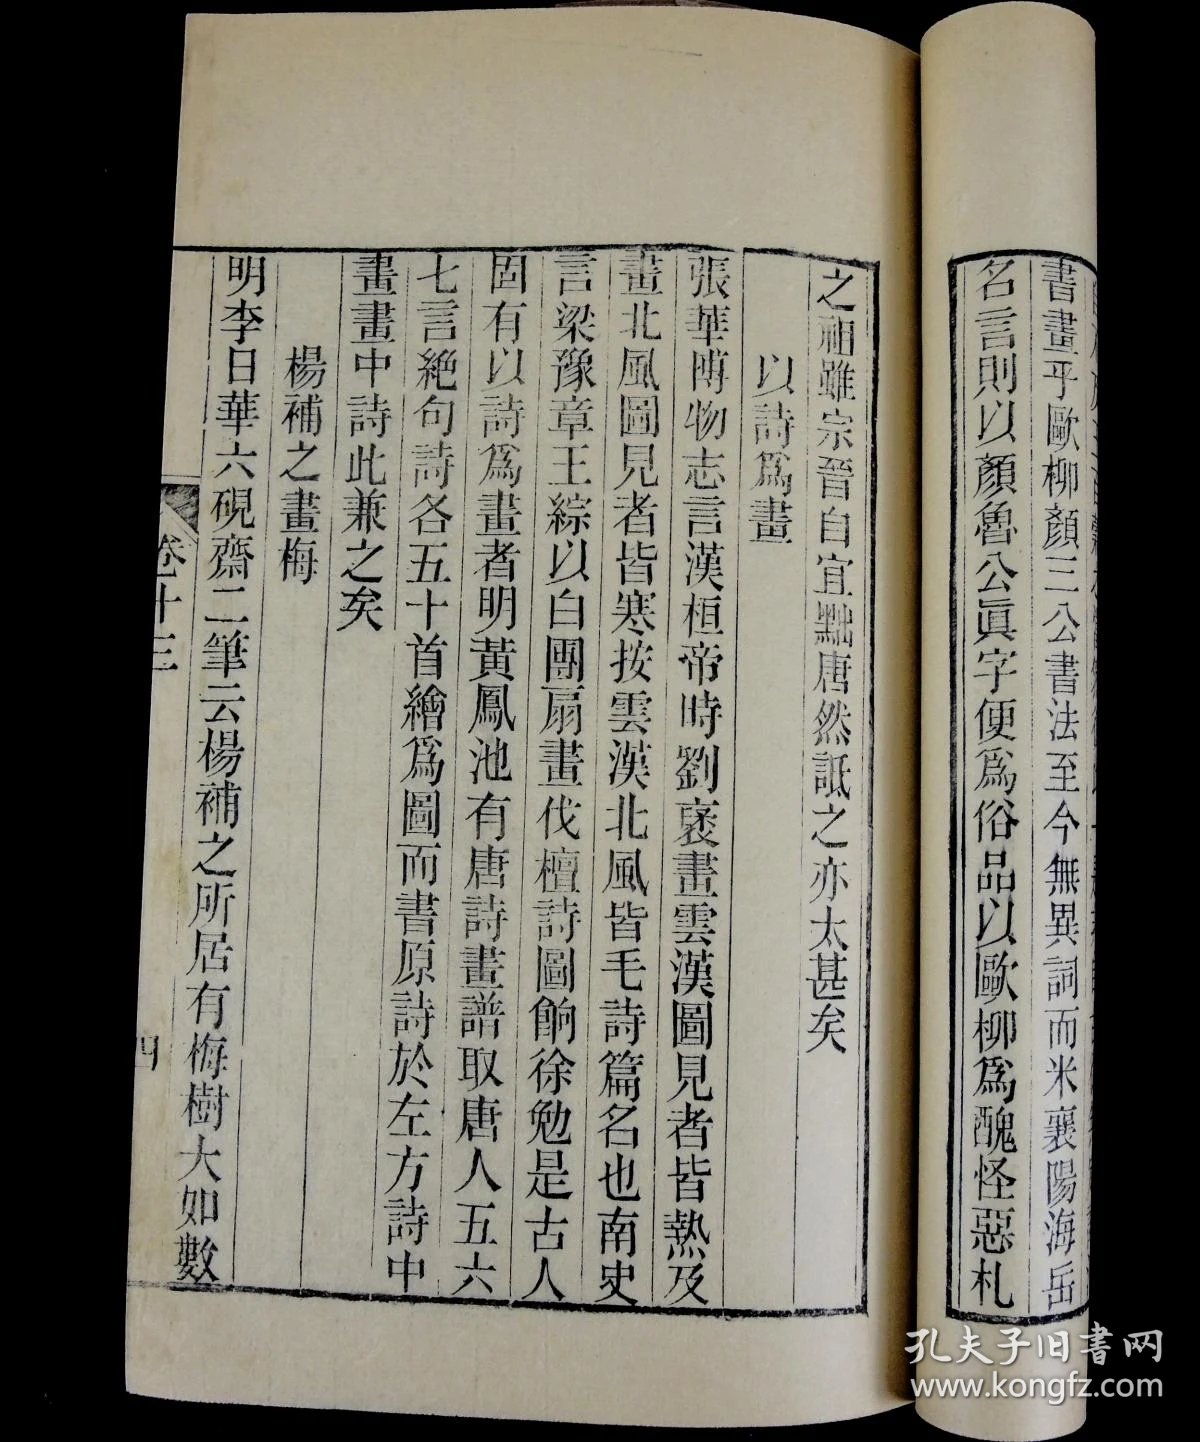 書畫乎歐柳顏三公書法至今無異詞而米襄陽海岳
名言則以顏魯公眞字便爲俗品以歐柳爲醜怪惡札
之祖雖宗晉自宜黜唐然詆之亦太甚矣
以詩爲畫
張華博物志言漢桓帝時劉褒畫雲漢圖見者皆熱及
畫北風圖見者皆寒按雲漢北風皆毛詩篇名也南史
言梁豫章王綜以白團扇畫伐檀詩圖餉徐勉是古人
固有以詩爲畫者明黃鳳池有唐詩畫譜取唐人五六
七言絕句詩各五十首繪爲圖而書原詩於左方詩中
畫畫中詩此兼之矣
楊補之畫梅
明李日華六硯齋二筆云楊補之所居有梅樹大如數
卷十三
四
孔夫子旧書网
www.kongfz.com